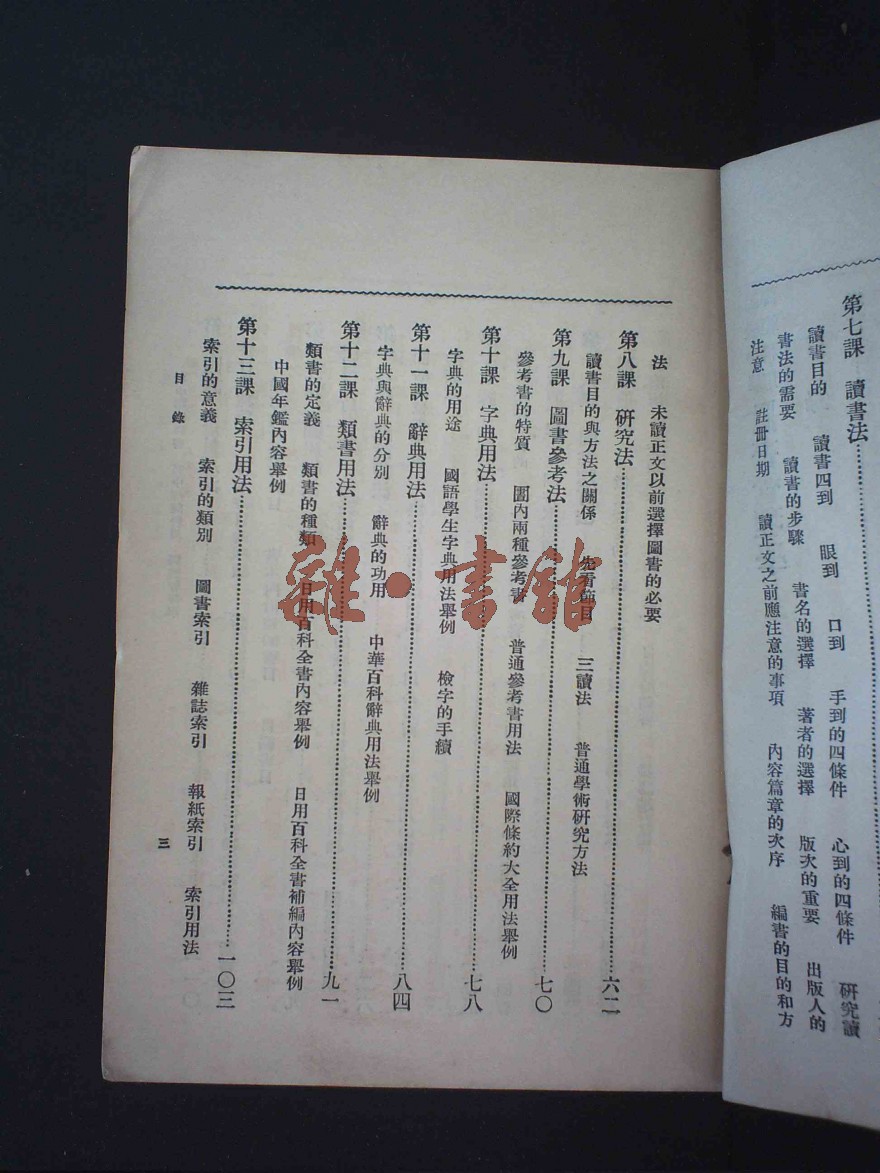 第七課　讀書法
讀書目的　讀書四到　眼到　口到　手到的四條件　心到的四條件　研究讀
書法的需要　讀書的步驟　書名的選擇　著者的選擇　版次的重要　出版人的
注意　註冊日期　讀正文之前應注意的事項　內容篇章的次序　編書的目的和方
法　未讀正文以前選擇圖書的必要
第八課　研究法……六二
讀書目的與方法之關係　先看節目　三讀法　普通學術研究方法
第九課　圖書參考法……七〇
參考書的特質　圕內兩種參考書　普通參考書用法　國際條約大全用法舉例
第十課　字典用法……七八
字典的用途　國語學生字典用法舉例　檢字的手續
第十一課　辭典用法……八四
字典與辭典的分別　辭典的功用　中華百科辭典用法舉例
第十二課　類書用法……九一
類書的定義　類書的種類　日用百科全書內容舉例　日用百科全書補編內容舉例
中國年鑑內容舉例
第十三課　索引用法……一〇三
索引的意義　索引的類別　圖書索引　雜誌索引　報紙索引　索引用法
目錄
三
雜·書館